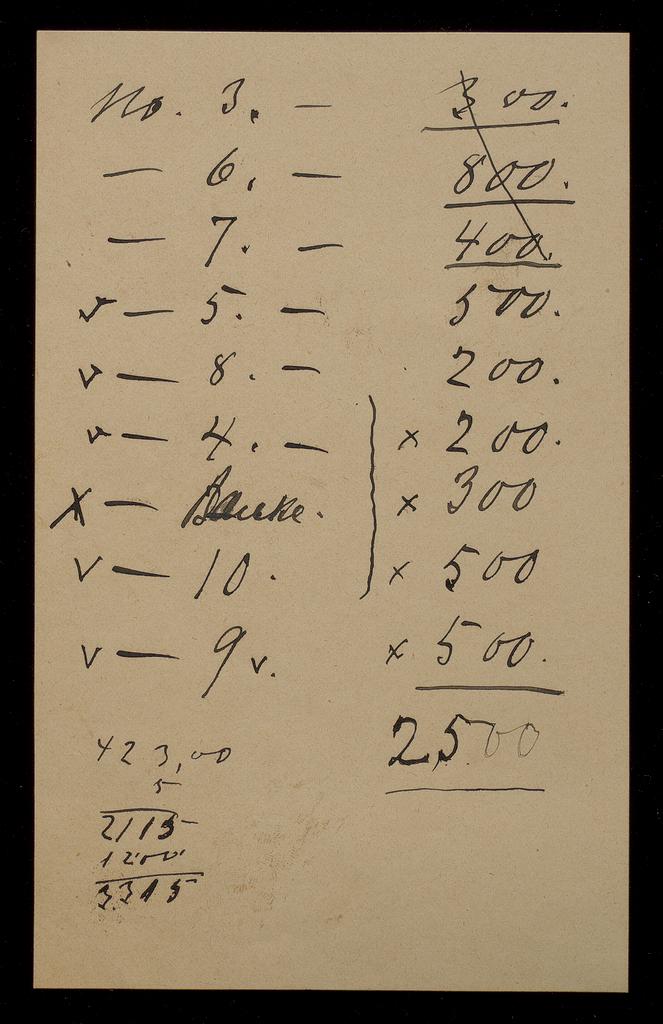 No. 3. — 300.
— 6. — 800.
— 7. — 400.
v — 5. — 500.
v — 8. — 200.
v — 4. — x 200.
X — Banke. x 300
v — 10. x 500
v — 9 v. x 500.
2500
423,00
5
2115
1200
3315